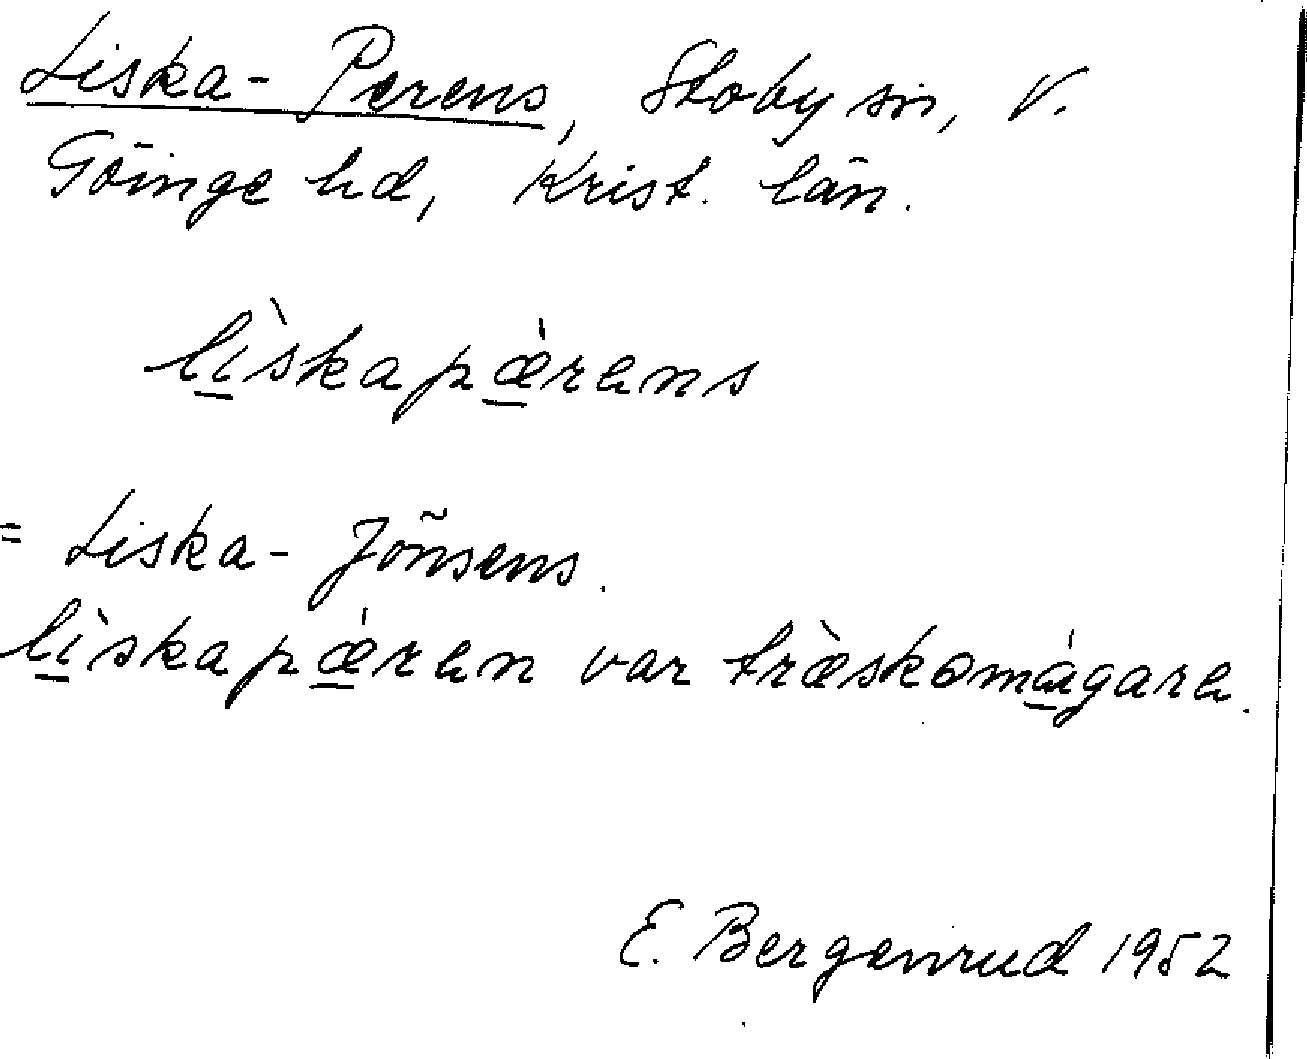 Liska-Perens, Stoby sn, V.
Göinge hd, Krist. län.
lìskapǽrens
= Liska-Jönsens.
lìskapǽren var træ̀skomágare.
E. Bergenrud 1952